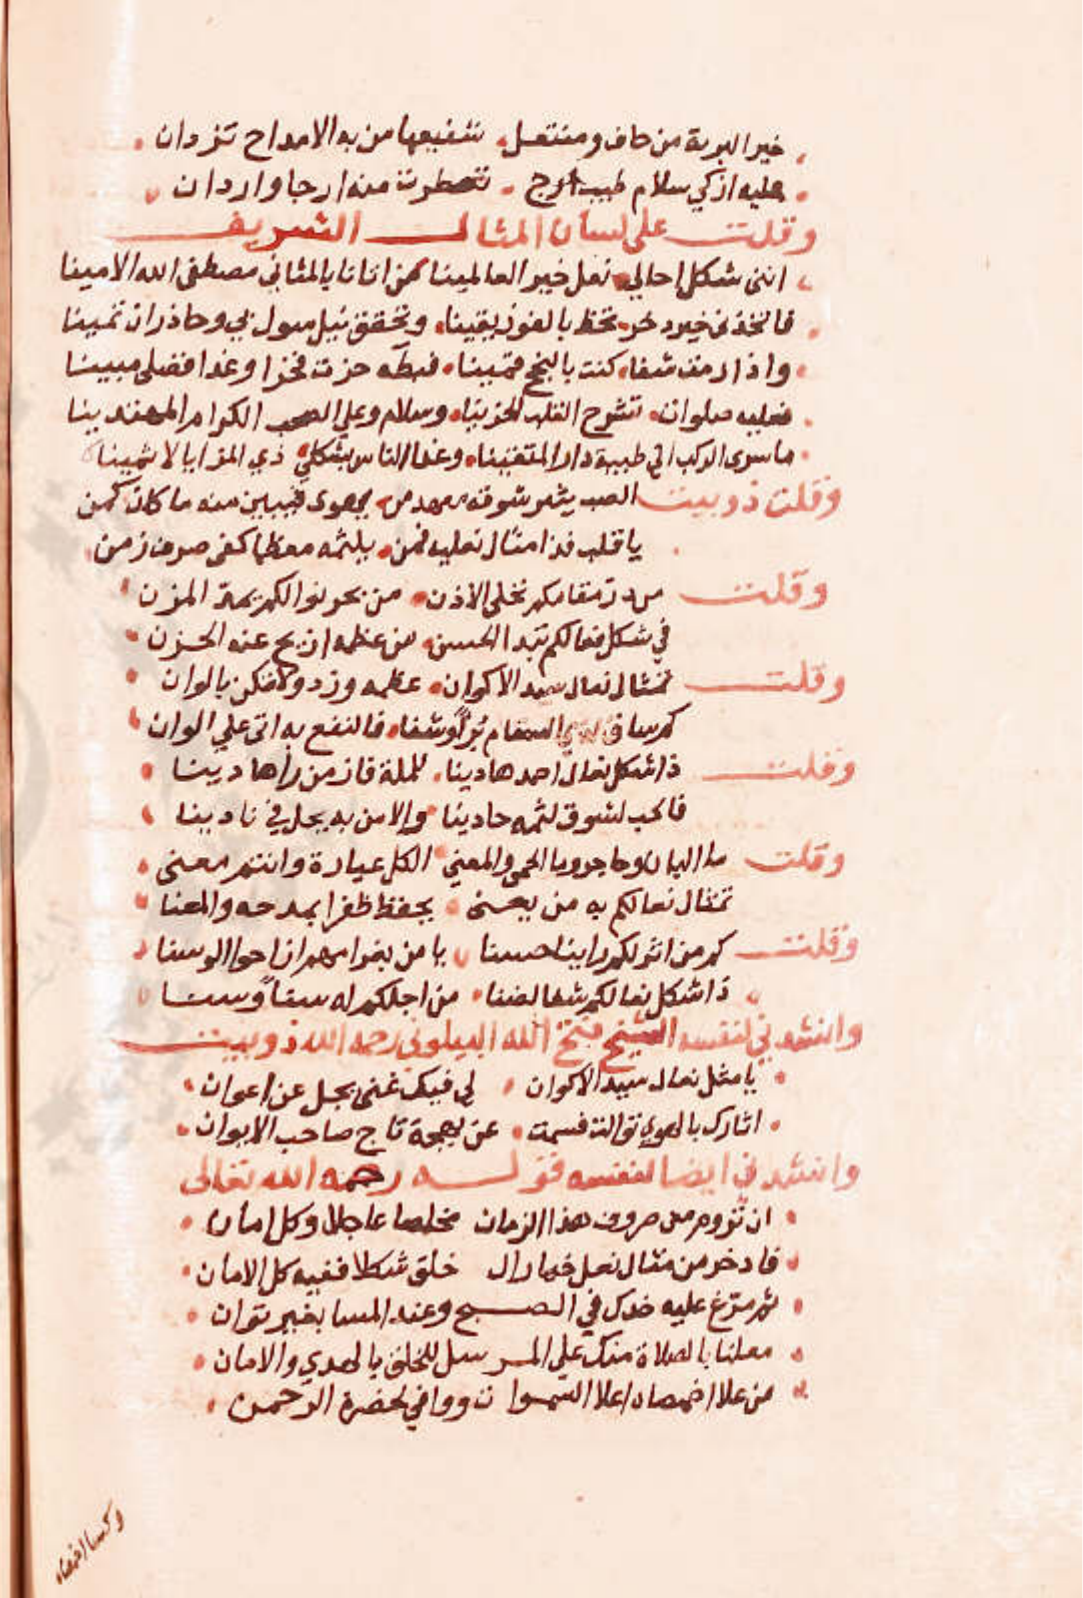 خير البرية من حاف ومنتعل شفيعها من به الامداح تزدان
عليه ازكي سلام طيب ارج تعطرت منه ارجا واردان
وقلت على لسان المثال الشريف
انني شكل احالي نعل خير العالمينا من اتانا بالمثاني مصطفى الله الامينا
فاتخذني خير ذخر تحظ بالفوز يقينا وتحقق نيل سول بي وحاذر ان تمينا
واذا رمت شفاء كنت بالنجح قمينا فبطه حزت فخرا وغدا فضلي مبينا
فعليه صلوات تشرح القلب الحزينا وسلام وعلي الصحب الكرام المهتدينا
ما سرى الركب الي طيبة دار المتقينا وغدا الناس بشكلي ذي المزايا لاثمينا
وقلت ذوبيت الصب يثير شوقه من فيبين منه ما كان كمن
يا قلب فذا مثال نعليه فمن بلثمه معظما كفي صرف زمن
وقلت مقامكم تحلى الاذن من نحو نوالكم المزن
في شكل نعالكم تبدا الحسن من عظمه انزيح عنه الحزن
وقلت تمثال نعال سيد الاكوان عظمه وزد ولا تكن بالوان
كم ساق لذي السقام برأ وشفاء فالنفع به اتى علي الوان
وقلت ذا شكل نعال احمد هادينا للملة فاز من رأها دينا
فالحب لشوق لثمه حادينا والامن به يحل في نادينا
وقلت الحمى والمعني الكل عبارة وانتم معنى
تمثال نعالكم به من يعنى يحفظ ظفرا بمدحه والمعنا
وقلت كم من اثر لكم راينا حسنا يا من
ذا شكل نعالكم شفا لضنا من اجلكم له سناً وسنا
وانشدني لنفسه الشيخ فتح الله البيلوني رحمه الله ذوبيت
يا مثل نعال سيد الاكوان لي فيك غنى يجل عن اعوان
اثارك بالهوي توالت فسمت عن بهجة تاج صاحب الايوان
وانشدني ايضا لنفسه قوله رحمه الله تعالى
ان تروم من صروف هذا الزمان مخلصا عاجلا وكل امان
فادخر من مثال نعل خيار ال خلق شكلا ففيه كل الامان
ثم مرّغ عليه خدك في الصبح وعند المسا بغير توان
معلنا بالصلاة منك علي المرسل للخلق بالهدي والامان
من علا اخمصاه اعلا السموات ووافي لحضرة الرحمن
وكسا اخمصاه